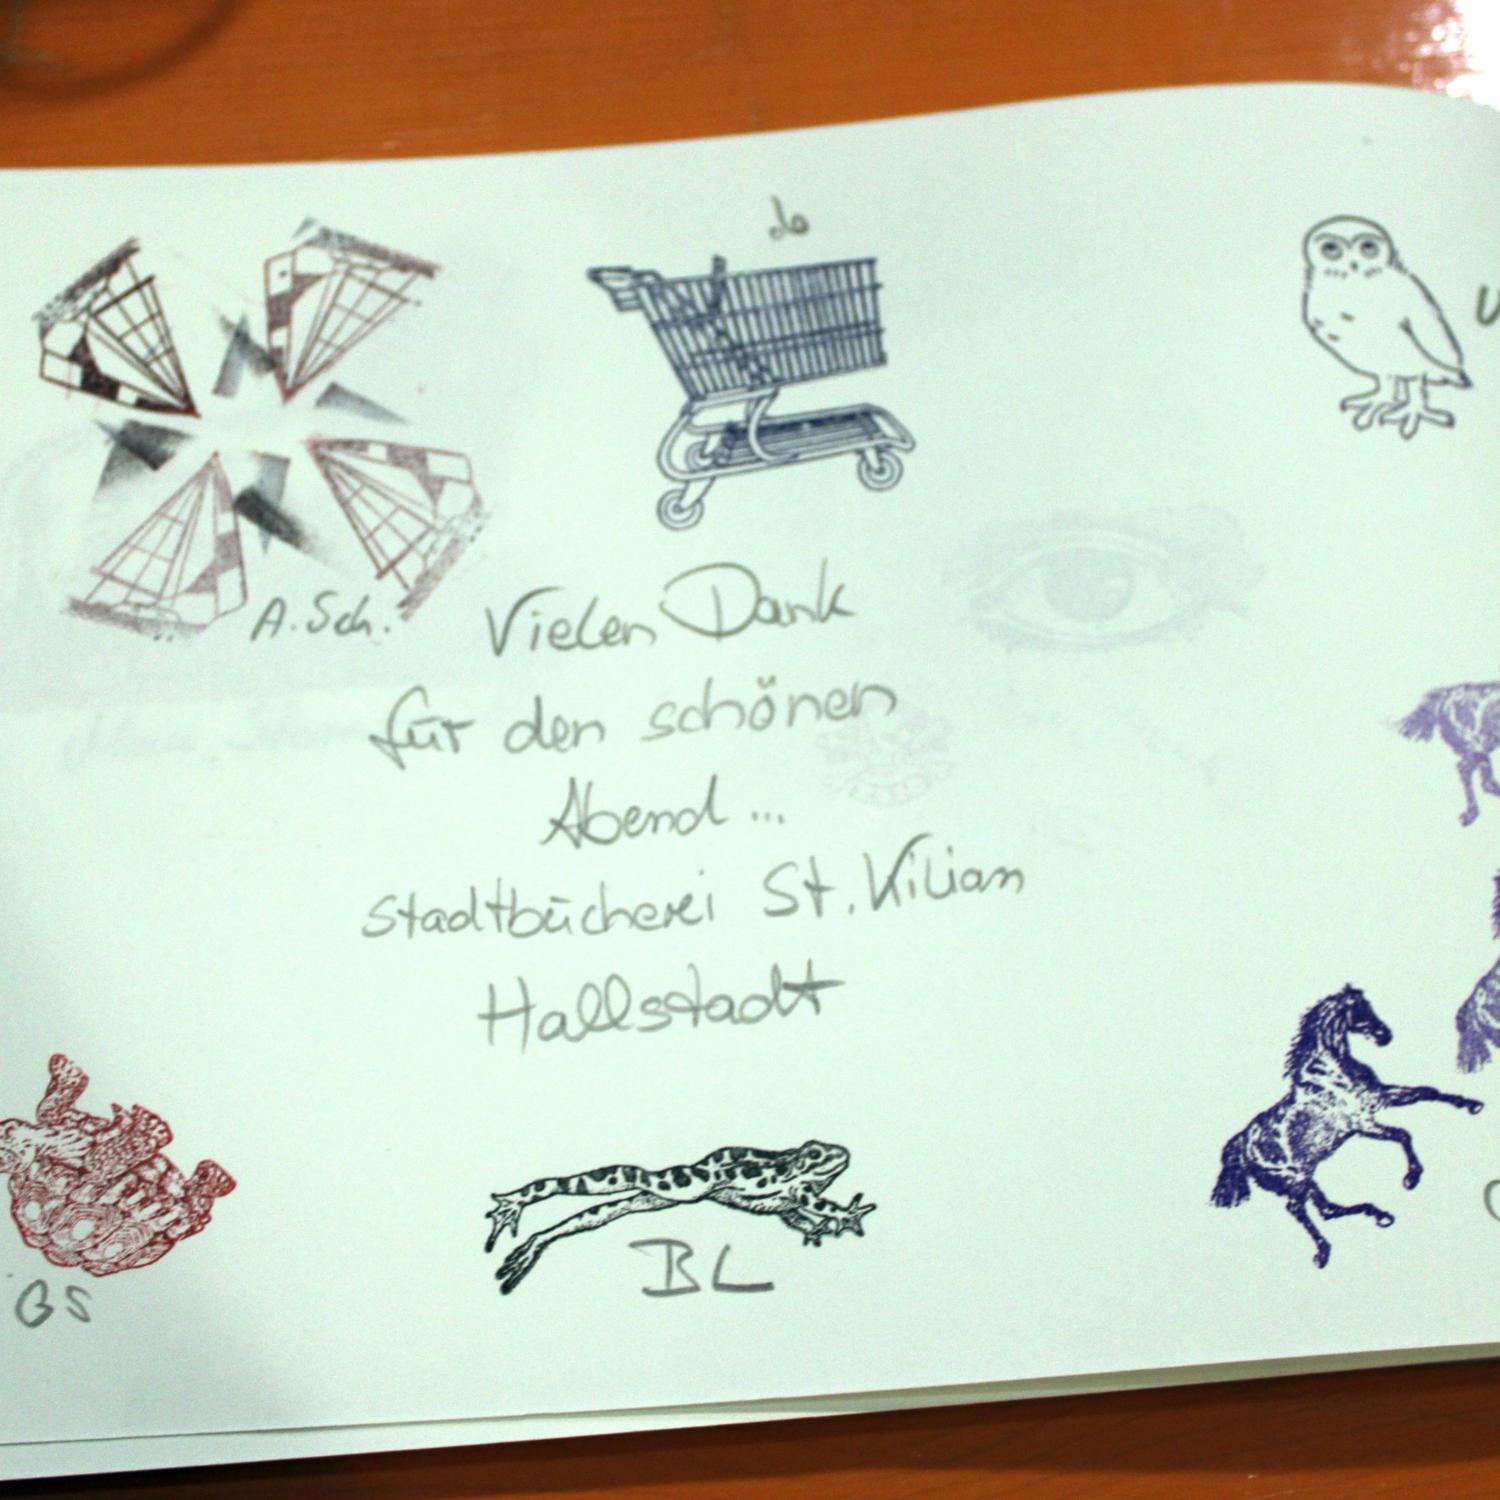 do
A.Sch.
Vielen Dank
für den schönen
Abend...
Stadtbücherei St. Kilian
Hallstadt
GS
BL